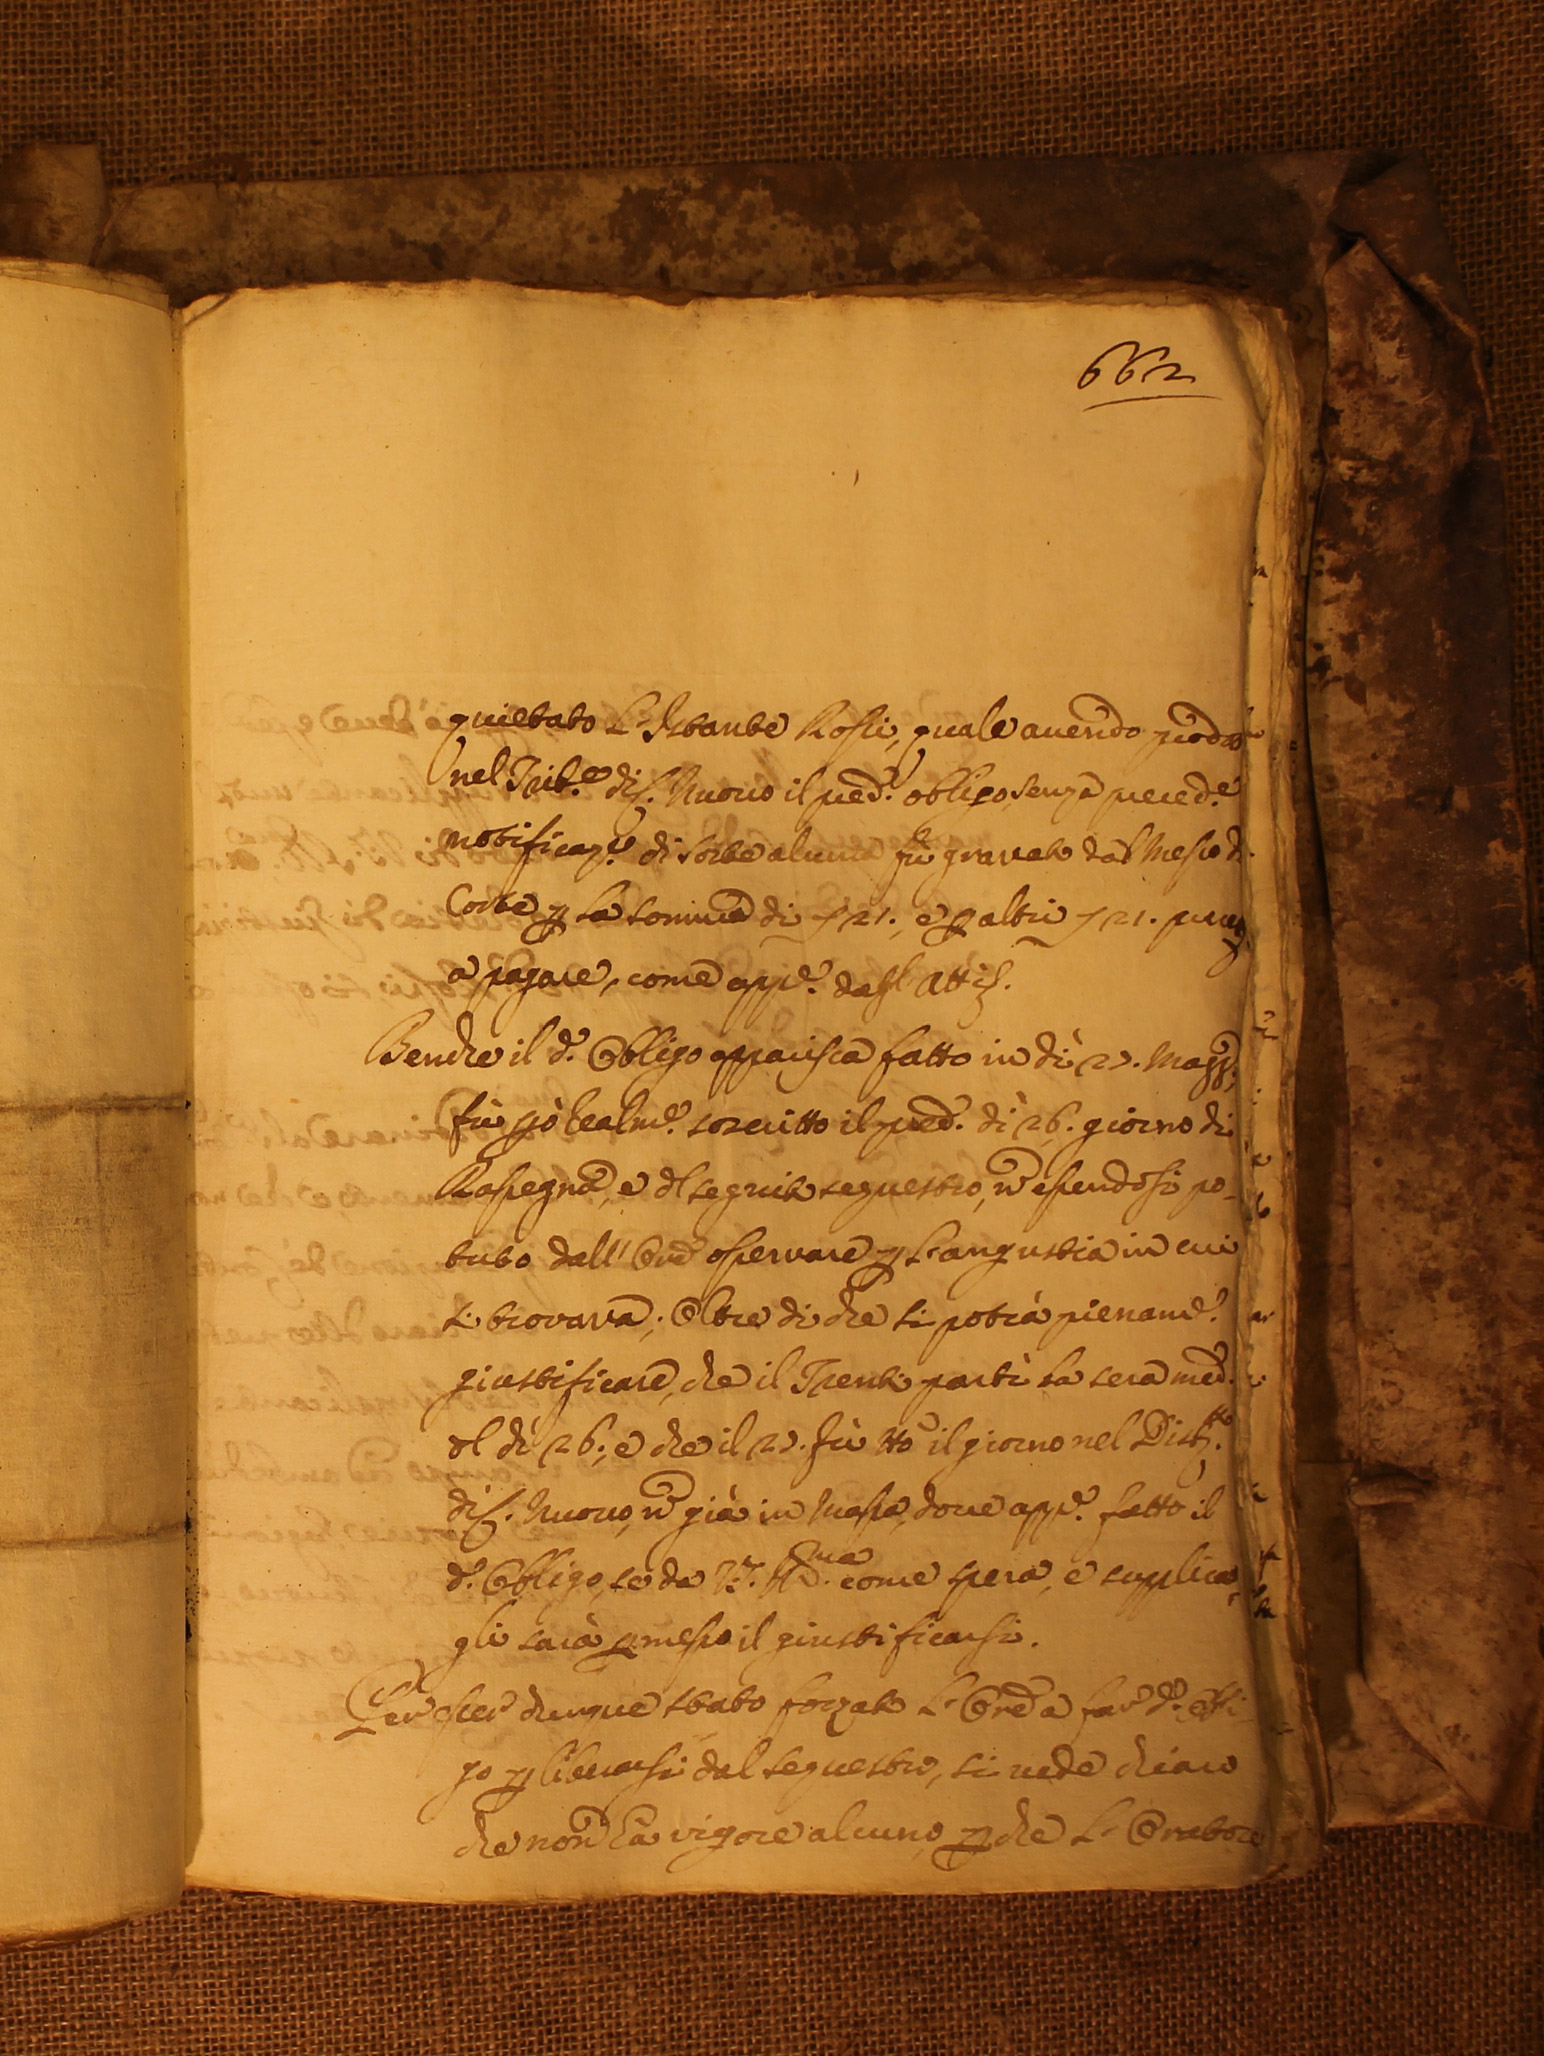 662
quietato l'Istante Rossi, quale avendo
nel Trib.e di C. Nuovo il pred.o obligo, senza preced.e
notificaz.e di sorte alcuna fù gravato dal Messo di
Corte p la somma di 21., e p altri 21.
a pagare, come app.e dagl'Atti.
Benche il d.o Obligo apparisca fatto in dì 27. Magg.
fù pò realm.e soscritto il pred.o dì 26. giorno di
Rassegna, e del seguito sequestro, ñ essendosi po-
tuto dall'Ore osservare p l'angustia in cui
si trovava; Oltre di che si potrà pienam.e
giustificare, che il Trenti partì la sera med.a
del dì 26; e che il 27. fù tto il giorno nel Dist.tto
di C. Nuovo, ñ già in Massa, dove app.e fatto il
d.o Obligo, se da V.S. Ill.ma come spera, e supplica,
gli sarà pmesso il giustificarsi.
Per esser dunque stato forzato l'Ore a far d.o obli-
go p liberarsi dal sequestro, si vede chiaro
che non hà vigore alcuno, pche l'Oratore